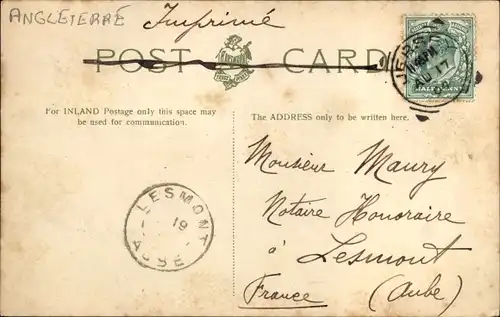 ANGLETERRE
Imprimé
POST CARD
JERSEY
17
HALFPENNY
For INLAND Postage only this space may
be used for communication.
The ADDRESS only to be written here.
Monsieur Maury
Notaire Honoraire
à Lesmont
France (Aube)
LESMONT
19
AUBE